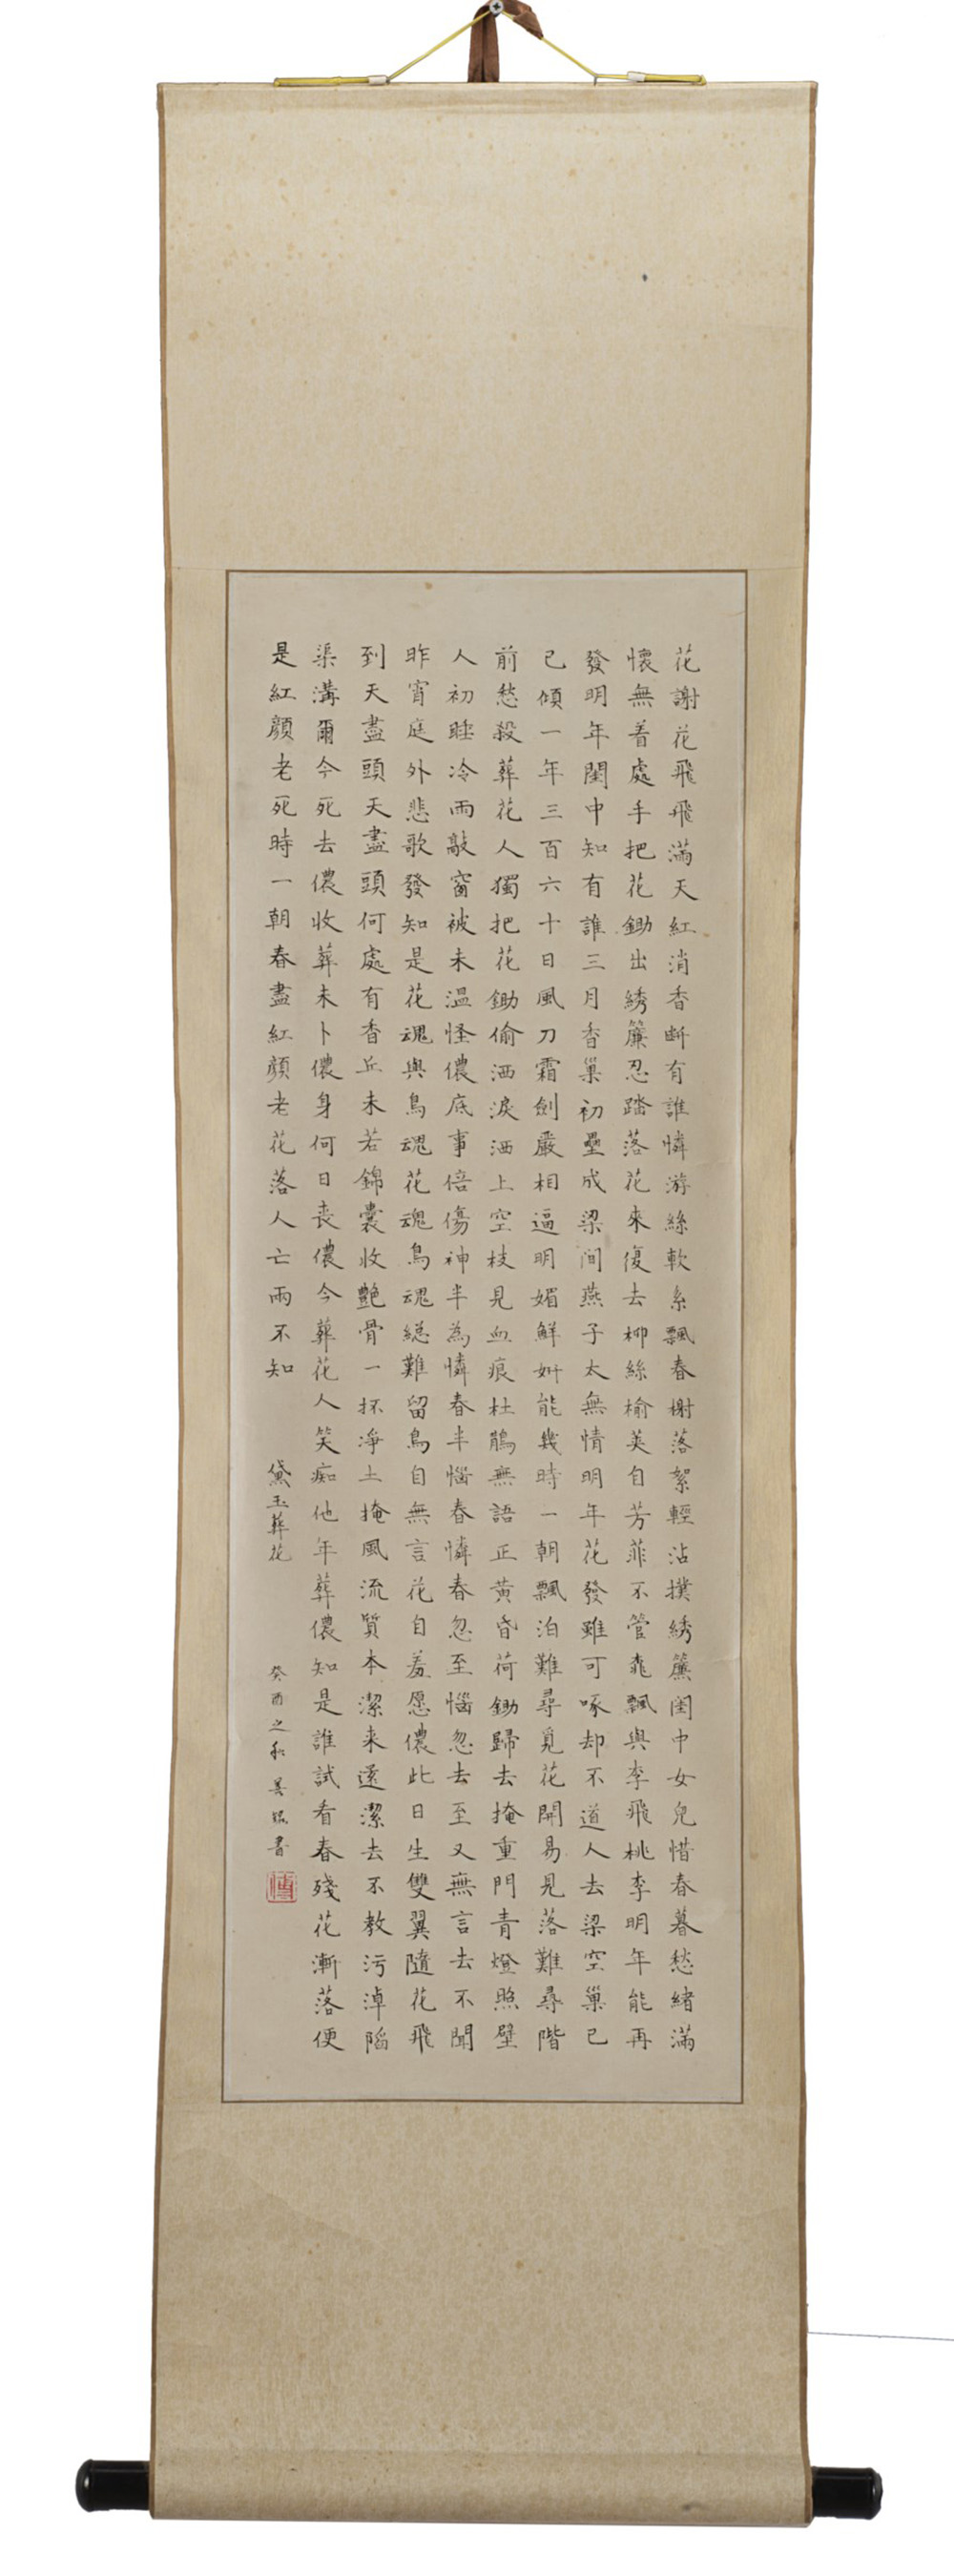 花謝花飛飛滿天紅消香斷有誰憐游絲軟系飄春榭落絮輕沾撲綉簾閨中女兒惜春暮愁緒滿
懷無着處手把花鋤出綉簾忍踏落花來復去柳絲榆莢自芳菲不管桃飄與李飛桃李明年能再
發明年閨中知有誰三月香巢初壘成梁间燕子太無情明年花發雖可啄却不道人去梁空巢已
傾一年三百六十日風刀霜劍嚴相逼明媚鮮妍能幾時一朝飄泊難尋覓花開易見落難尋階
前愁殺葬花人獨把花鋤偷洒淚洒上空枝見血痕杜鵑無語正黃昏荷鋤歸去掩重門青燈照壁
人初睡冷雨敲窗被未溫怪儂底事倍傷神半為憐春半惱春憐春忽至惱忽去至又無言去不聞
昨宵庭外悲歌發知是花魂與鳥魂花魂鳥魂總難留鳥自無言花自羞愿儂此日生雙翼隨花飛
到天盡頭天盡頭何處有香丘未若錦囊收艷骨一抔凈土掩風流質本潔来還潔去不教污淖陷
渠溝爾今死去儂收葬未卜儂身何日喪儂今葬花人笑痴他年葬儂知是誰試看春殘花漸落便
是紅顏老死時一朝春盡紅顏老花落人亡兩不知
黛玉葬花
癸酉之秋
書